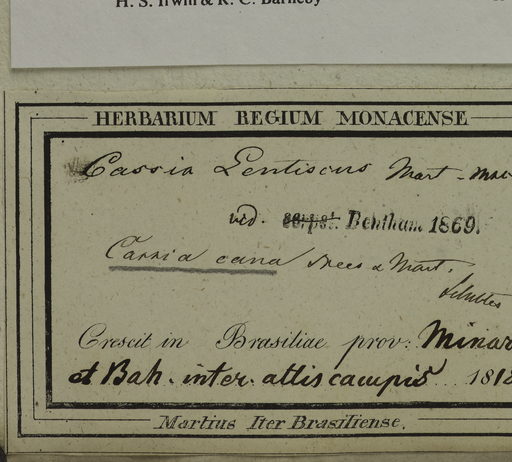 H. S. Irwin & R. C. Barneby
HERBARIUM REGIUM MONACENSE
Cassia Lentiscus Mart.
vid. Bentham. 1869.
Cassia cana Nees & Mart.
Crescit in Brasiliae prov: Minar
et Bah. inter. altis campis 181
Martius Iter Brasiliense.